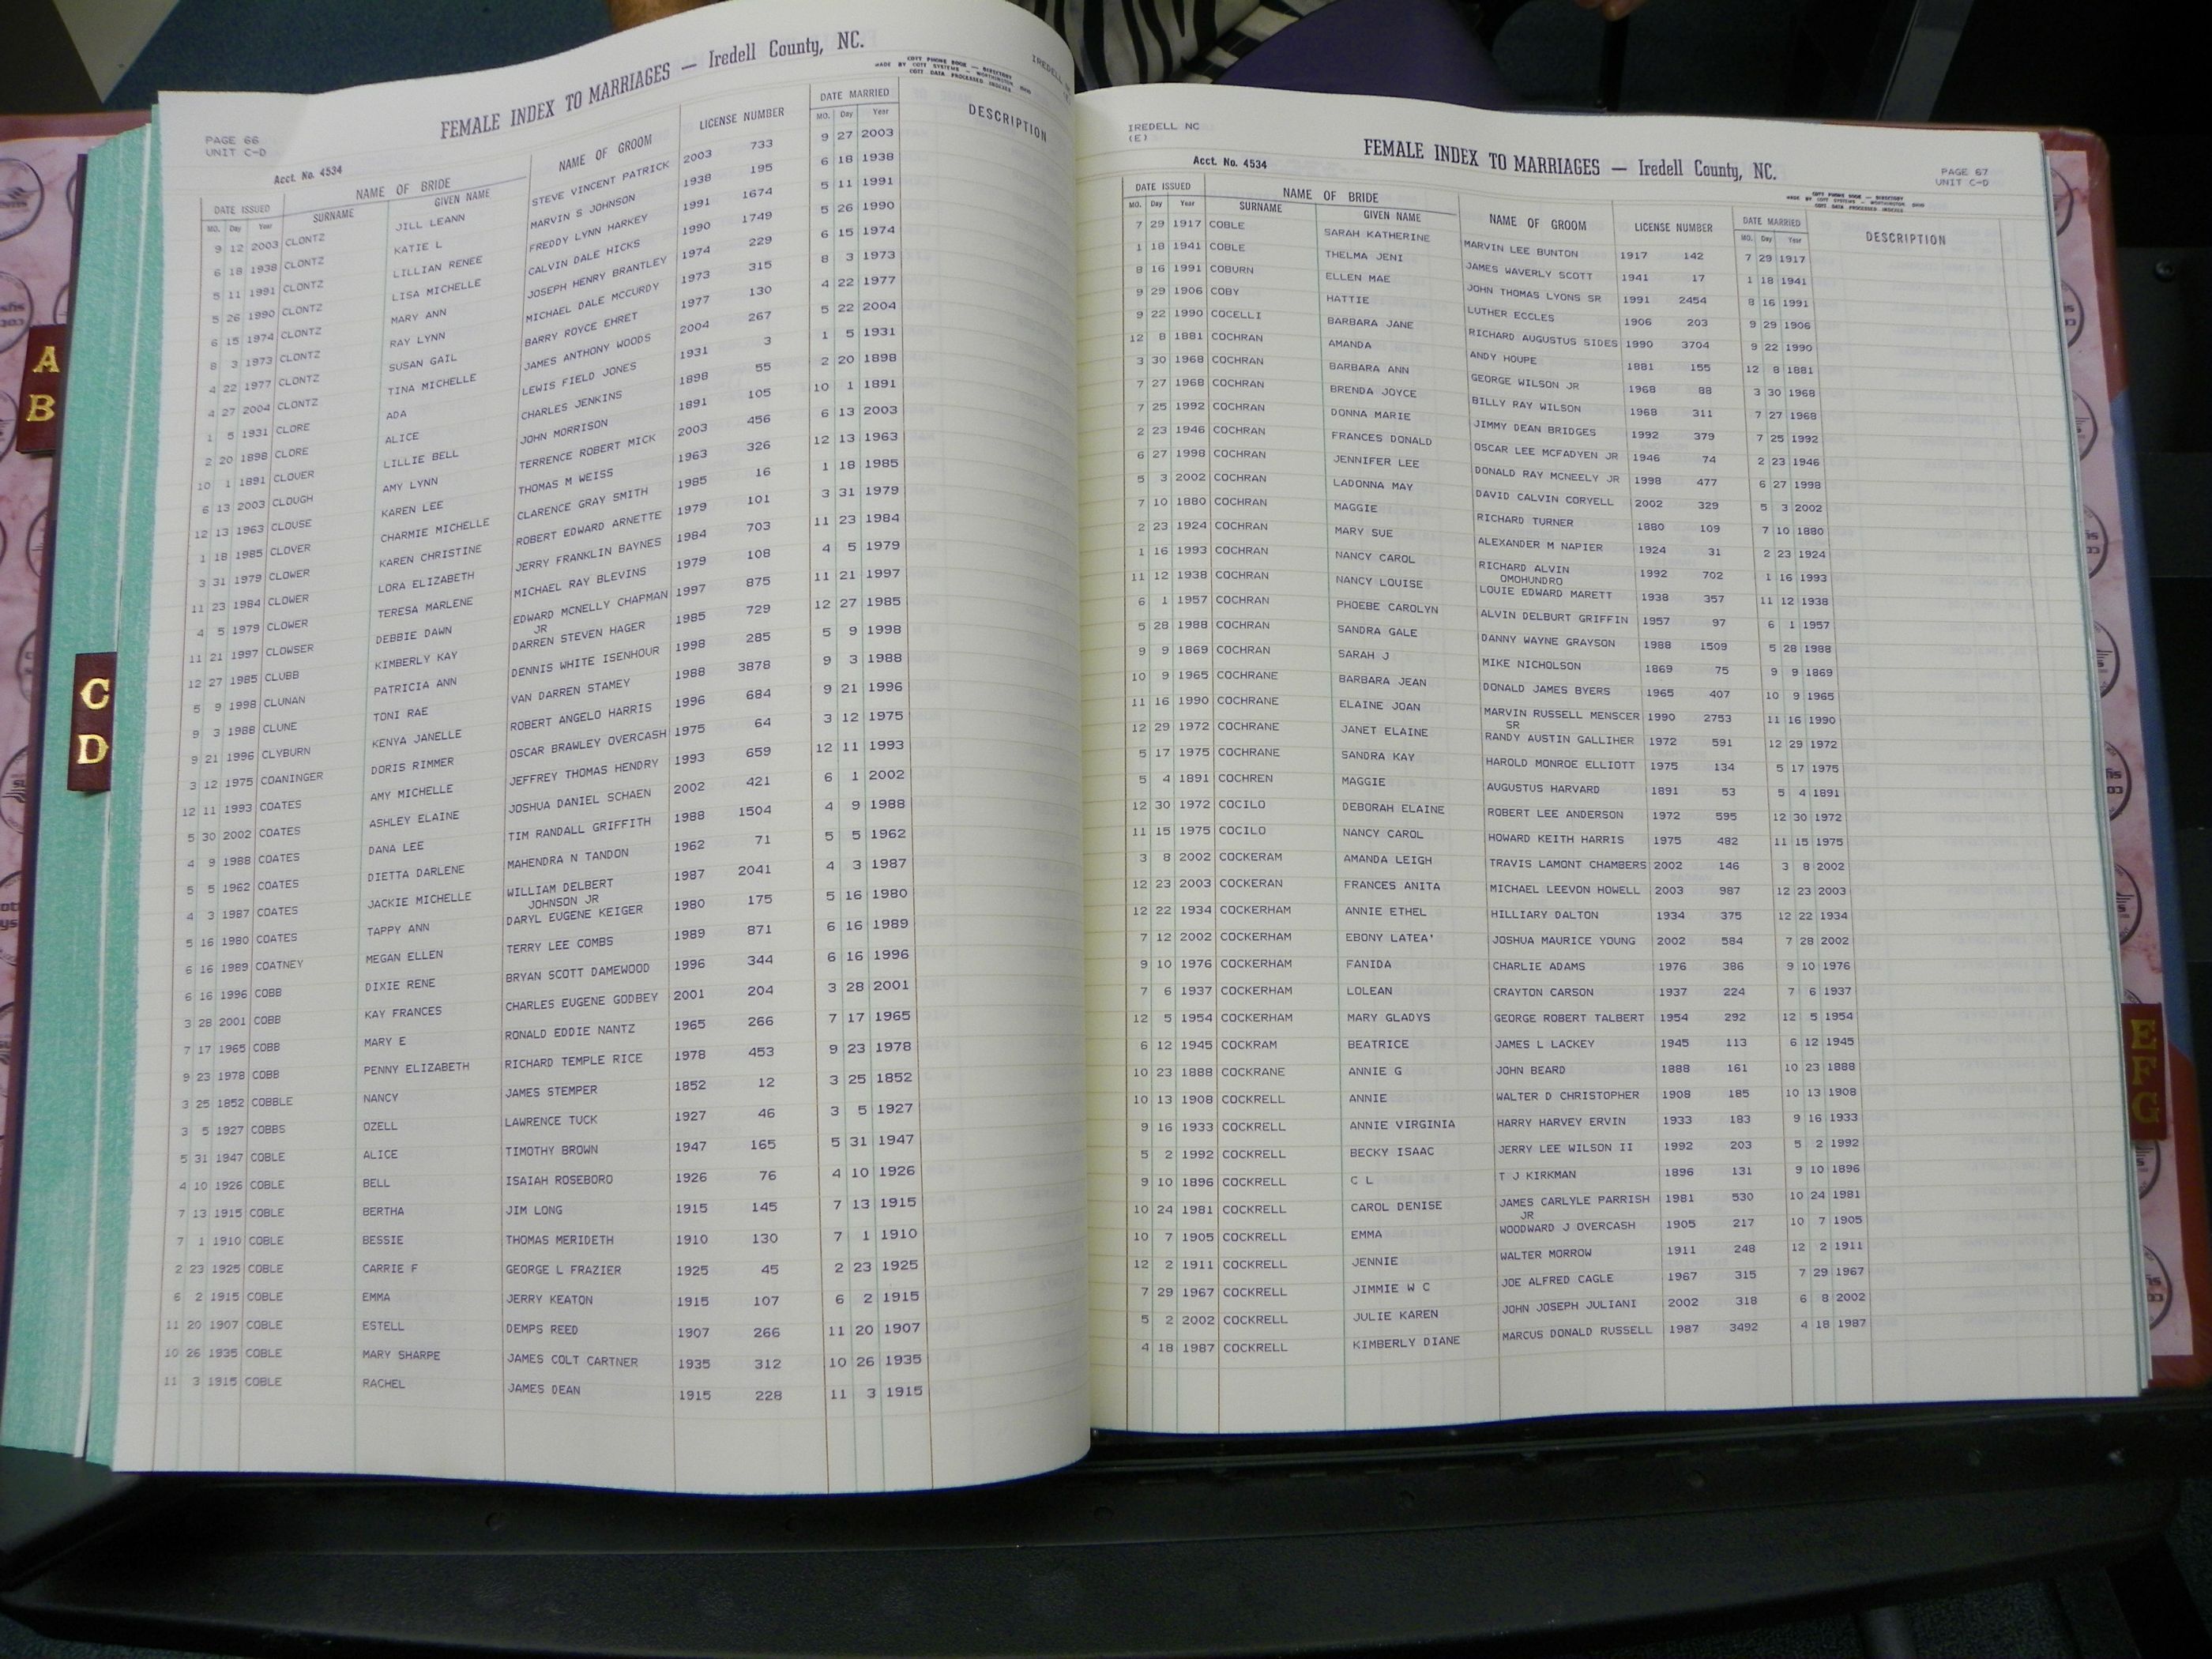 PAGE 66
UNIT C-D
FEMALE INDEX TO MARRIAGES — Iredell County, NC.
COTT PHONE BOOK — DIRECTORY
MADE BY COTT SYSTEMS — WORTHINGTON, OHIO
COTT DATA PROCESSED INDEXES
Acct. No. 4534
DATE ISSUED NAME OF BRIDE NAME OF GROOM LICENSE NUMBER DATE MARRIED DESCRIPTION
MO. Day Year SURNAME GIVEN NAME MO. Day Year
9 12 2003 CLONTZ JILL LEANN STEVE VINCENT PATRICK 2003 733 9 27 2003
6 18 1938 CLONTZ KATIE L MARVIN S JOHNSON 1938 195 6 18 1938
5 11 1991 CLONTZ LILLIAN RENEE FREDDY LYNN HARKEY 1991 1674 5 11 1991
5 26 1990 CLONTZ LISA MICHELLE CALVIN DALE HICKS 1990 1749 5 26 1990
6 15 1974 CLONTZ MARY ANN JOSEPH HENRY BRANTLEY 1974 229 6 15 1974
8 3 1973 CLONTZ RAY LYNN MICHAEL DALE MCCURDY 1973 315 8 3 1973
4 22 1977 CLONTZ SUSAN GAIL BARRY ROYCE EHRET 1977 130 4 22 1977
4 27 2004 CLONTZ TINA MICHELLE JAMES ANTHONY WOODS 2004 267 5 22 2004
1 5 1931 CLORE ADA LEWIS FIELD JONES 1931 3 1 5 1931
2 20 1898 CLORE ALICE CHARLES JENKINS 1898 55 2 20 1898
10 1 1891 CLOUER LILLIE BELL JOHN MORRISON 1891 105 10 1 1891
6 13 2003 CLOUGH AMY LYNN TERRENCE ROBERT MICK 2003 456 6 13 2003
12 13 1963 CLOUSE KAREN LEE THOMAS M WEISS 1963 326 12 13 1963
1 18 1985 CLOVER CHARMIE MICHELLE CLARENCE GRAY SMITH 1985 16 1 18 1985
3 31 1979 CLOWER KAREN CHRISTINE ROBERT EDWARD ARNETTE 1979 101 3 31 1979
11 23 1984 CLOWER LORA ELIZABETH JERRY FRANKLIN BAYNES 1984 703 11 23 1984
4 5 1979 CLOWER TERESA MARLENE MICHAEL RAY BLEVINS 1979 108 4 5 1979
11 21 1997 CLOWSER DEBBIE DAWN EDWARD MCNELLY CHAPMAN 1997 875 11 21 1997
JR
12 27 1985 CLUBB KIMBERLY KAY DARREN STEVEN HAGER 1985 729 12 27 1985
5 9 1998 CLUNAN PATRICIA ANN DENNIS WHITE ISENHOUR 1998 285 5 9 1998
9 3 1988 CLUNE TONI RAE VAN DARREN STAMEY 1988 3878 9 3 1988
9 21 1996 CLYBURN KENYA JANELLE ROBERT ANGELO HARRIS 1996 684 9 21 1996
3 12 1975 COANINGER DORIS RIMMER OSCAR BRAWLEY OVERCASH 1975 64 3 12 1975
12 11 1993 COATES AMY MICHELLE JEFFREY THOMAS HENDRY 1993 659 12 11 1993
5 30 2002 COATES ASHLEY ELAINE JOSHUA DANIEL SCHAEN 2002 421 6 1 2002
4 9 1988 COATES DANA LEE TIM RANDALL GRIFFITH 1988 1504 4 9 1988
5 5 1962 COATES DIETTA DARLENE MAHENDRA N TANDON 1962 71 5 5 1962
4 3 1987 COATES JACKIE MICHELLE WILLIAM DELBERT 1987 2041 4 3 1987
JOHNSON JR
5 16 1980 COATES TAPPY ANN DARYL EUGENE KEIGER 1980 175 5 16 1980
6 16 1989 COATNEY MEGAN ELLEN TERRY LEE COMBS 1989 871 6 16 1989
6 16 1996 COBB DIXIE RENE BRYAN SCOTT DAMEWOOD 1996 344 6 16 1996
3 28 2001 COBB KAY FRANCES CHARLES EUGENE GODBEY 2001 204 3 28 2001
7 17 1965 COBB MARY E RONALD EDDIE NANTZ 1965 266 7 17 1965
9 23 1978 COBB PENNY ELIZABETH RICHARD TEMPLE RICE 1978 453 9 23 1978
3 25 1852 COBBLE NANCY JAMES STEMPER 1852 12 3 25 1852
3 5 1927 COBBS OZELL LAWRENCE TUCK 1927 46 3 5 1927
5 31 1947 COBLE ALICE TIMOTHY BROWN 1947 165 5 31 1947
4 10 1926 COBLE BELL ISAIAH ROSEBORO 1926 76 4 10 1926
7 13 1915 COBLE BERTHA JIM LONG 1915 145 7 13 1915
7 1 1910 COBLE BESSIE THOMAS MERIDETH 1910 130 7 1 1910
2 23 1925 COBLE CARRIE F GEORGE L FRAZIER 1925 45 2 23 1925
6 2 1915 COBLE EMMA JERRY KEATON 1915 107 6 2 1915
11 20 1907 COBLE ESTELL DEMPS REED 1907 266 11 20 1907
10 26 1935 COBLE MARY SHARPE JAMES COLT CARTNER 1935 312 10 26 1935
11 3 1915 COBLE RACHEL JAMES DEAN 1915 228 11 3 1915
IREDELL NC
(E)
FEMALE INDEX TO MARRIAGES — Iredell County, NC.
PAGE 67
UNIT C-D
Acct. No. 4534
COTT PHONE BOOK — DIRECTORY
MADE BY COTT SYSTEMS — WORTHINGTON, OHIO
COTT DATA PROCESSED INDEXES
DATE ISSUED NAME OF BRIDE NAME OF GROOM LICENSE NUMBER DATE MARRIED DESCRIPTION
MO. Day Year SURNAME GIVEN NAME MO. Day Year
7 29 1917 COBLE SARAH KATHERINE MARVIN LEE BUNTON 1917 142 7 29 1917
1 18 1941 COBLE THELMA JENI JAMES WAVERLY SCOTT 1941 17 1 18 1941
8 16 1991 COBURN ELLEN MAE JOHN THOMAS LYONS SR 1991 2454 8 16 1991
9 29 1906 COBY HATTIE LUTHER ECCLES 1906 203 9 29 1906
9 22 1990 COCELLI BARBARA JANE RICHARD AUGUSTUS SIDES 1990 3704 9 22 1990
12 8 1881 COCHRAN AMANDA ANDY HOUPE 1881 155 12 8 1881
3 30 1968 COCHRAN BARBARA ANN GEORGE WILSON JR 1968 88 3 30 1968
7 27 1968 COCHRAN BRENDA JOYCE BILLY RAY WILSON 1968 311 7 27 1968
7 25 1992 COCHRAN DONNA MARIE JIMMY DEAN BRIDGES 1992 379 7 25 1992
2 23 1946 COCHRAN FRANCES DONALD OSCAR LEE MCFADYEN JR 1946 74 2 23 1946
6 27 1998 COCHRAN JENNIFER LEE DONALD RAY MCNEELY JR 1998 477 6 27 1998
5 3 2002 COCHRAN LADONNA MAY DAVID CALVIN CORYELL 2002 329 5 3 2002
7 10 1880 COCHRAN MAGGIE RICHARD TURNER 1880 109 7 10 1880
2 23 1924 COCHRAN MARY SUE ALEXANDER M NAPIER 1924 31 2 23 1924
1 16 1993 COCHRAN NANCY CAROL RICHARD ALVIN 1992 702 1 16 1993
OMOHUNDRO
11 12 1938 COCHRAN NANCY LOUISE LOUIE EDWARD MARETT 1938 357 11 12 1938
6 1 1957 COCHRAN PHOEBE CAROLYN ALVIN DELBURT GRIFFIN 1957 97 6 1 1957
5 28 1988 COCHRAN SANDRA GALE DANNY WAYNE GRAYSON 1988 1509 5 28 1988
9 9 1869 COCHRAN SARAH J MIKE NICHOLSON 1869 75 9 9 1869
10 9 1965 COCHRANE BARBARA JEAN DONALD JAMES BYERS 1965 407 10 9 1965
11 16 1990 COCHRANE ELAINE JOAN MARVIN RUSSELL MENSCER 1990 2753 11 16 1990
SR
12 29 1972 COCHRANE JANET ELAINE RANDY AUSTIN GALLIHER 1972 591 12 29 1972
5 17 1975 COCHRANE SANDRA KAY HAROLD MONROE ELLIOTT 1975 134 5 17 1975
5 4 1891 COCHREN MAGGIE AUGUSTUS HARVARD 1891 53 5 4 1891
12 30 1972 COCILO DEBORAH ELAINE ROBERT LEE ANDERSON 1972 595 12 30 1972
11 15 1975 COCILO NANCY CAROL HOWARD KEITH HARRIS 1975 482 11 15 1975
3 8 2002 COCKERAM AMANDA LEIGH TRAVIS LAMONT CHAMBERS 2002 146 3 8 2002
12 23 2003 COCKERAN FRANCES ANITA MICHAEL LEEVON HOWELL 2003 987 12 23 2003
12 22 1934 COCKERHAM ANNIE ETHEL HILLIARY DALTON 1934 375 12 22 1934
7 12 2002 COCKERHAM EBONY LATEA' JOSHUA MAURICE YOUNG 2002 584 7 28 2002
9 10 1976 COCKERHAM FANIDA CHARLIE ADAMS 1976 386 9 10 1976
7 6 1937 COCKERHAM LOLEAN CRAYTON CARSON 1937 224 7 6 1937
12 5 1954 COCKERHAM MARY GLADYS GEORGE ROBERT TALBERT 1954 292 12 5 1954
6 12 1945 COCKRAM BEATRICE JAMES L LACKEY 1945 113 6 12 1945
10 23 1888 COCKRANE ANNIE G JOHN BEARD 1888 161 10 23 1888
10 13 1908 COCKRELL ANNIE WALTER D CHRISTOPHER 1908 185 10 13 1908
9 16 1933 COCKRELL ANNIE VIRGINIA HARRY HARVEY ERVIN 1933 183 9 16 1933
5 2 1992 COCKRELL BECKY ISAAC JERRY LEE WILSON II 1992 203 5 2 1992
9 10 1896 COCKRELL C L T J KIRKMAN 1896 131 9 10 1896
10 24 1981 COCKRELL CAROL DENISE JAMES CARLYLE PARRISH 1981 530 10 24 1981
JR
10 7 1905 COCKRELL EMMA WOODWARD J OVERCASH 1905 217 10 7 1905
12 2 1911 COCKRELL JENNIE WALTER MORROW 1911 248 12 2 1911
7 29 1967 COCKRELL JIMMIE W C JOE ALFRED CAGLE 1967 315 7 29 1967
5 2 2002 COCKRELL JULIE KAREN JOHN JOSEPH JULIANI 2002 318 6 8 2002
4 18 1987 COCKRELL KIMBERLY DIANE MARCUS DONALD RUSSELL 1987 3492 4 18 1987
A
B
C
D
E
F
G